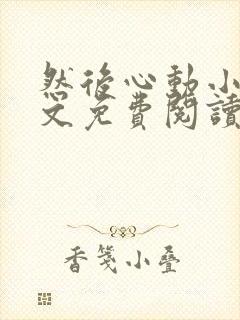 然後心動小
文免費閱讀
香箋小疊